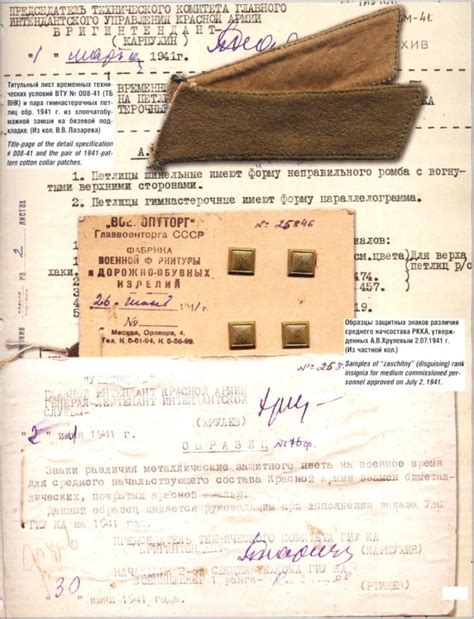 ПРЕДСЕДАТЕЛЬ ТЕХНИЧЕСКОГО КОМИТЕТА ГЛАВНОГО
ИНТЕНДАНТСКОГО УПРАВЛЕНИЯ КРАСНОЙ АРМИИ
БРИГИНТЕНДАНТ-
(КАРПУХИН)
"1" марта 1941г.
М-41
ХИВ
Титульный лист временных техни-
ческих условий ВТУ № 008-41 (ТБ
ВНК) и пара гимнастерочных пет-
лиц обр. 1941 г. из хлопчатобу-
мажной замши на бязевой под-
кладке. (Из кол. В.В. Лазарева)
Title-page of the detail specification
# 008-41 and the pair of 1941-pat-
tern cotton collar patches.
ВРЕМЕННЫ
НА ПЕТЛИ
ТЕРОЧНЫ
А.
1. Петлицы шинельные имеют форму неправильного ромба с вог-
нутыми верхними сторонами.
2. Петлицы гимнастерочные имеют форму параллелограмма.
на 2 листах
"ВОЕНОПТТОРГ"
Главвоенторга СССР
ФАБРИКА
ВОЕННОЙ ФУРНИТУРЫ
и ДОРОЖНО-ОБУВНЫХ
ИЗДЕЛИЙ
26 1941 г.
№
Москва, Орликов, 4.
Тел. К 5-61-94, К 5-56-99.
№ 25846
иалов:
си.цвета) Для верха
хаки. петлиц р/с
457.
474.
Образцы защитных знаков различия
среднего начсостава РККА, утверж-
денных А.В.Хрулевым 2.07.1941 г.
(Из частной кол.)
Samples of "zaschitny" (disguising) rank
insignia for medium commissioned per-
sonnel approved on July 2, 1941.
№ 258
ГЛАВНЫЙ ИНТЕНДАНТ КРАСНОЙ АРМИИ
ГЕНЕРАЛ-ЛЕЙТЕНАНТ ИНТЕНДАНТСКОЙ
СЛУЖБЫ-
(ХРУЛЕВ)
"2" 1941 г.
ОБРАЗЕЦ
Знаки различия металлические защитного цвета на военное время
для среднего начальствующего состава Красной Армии взамен биметал-
лических, покрытых красной эмалью.
Данный образец является руководящим при выполнении заказа
ГИУ КА на 1941 год.
ПРЕДСЕДАТЕЛЬ ТЕХНИЧЕСКОГО КОМИТЕТА ГИУ КА
БРИГИНТЕНДАНТ-
(КАРПУХИН)
НАЧАЛЬНИК 2-ой СЕКЦИИ ТЕХКОМА ГИУ КА
1 ранга-
(РТИЩЕВ)
"30" июня 1941 г.